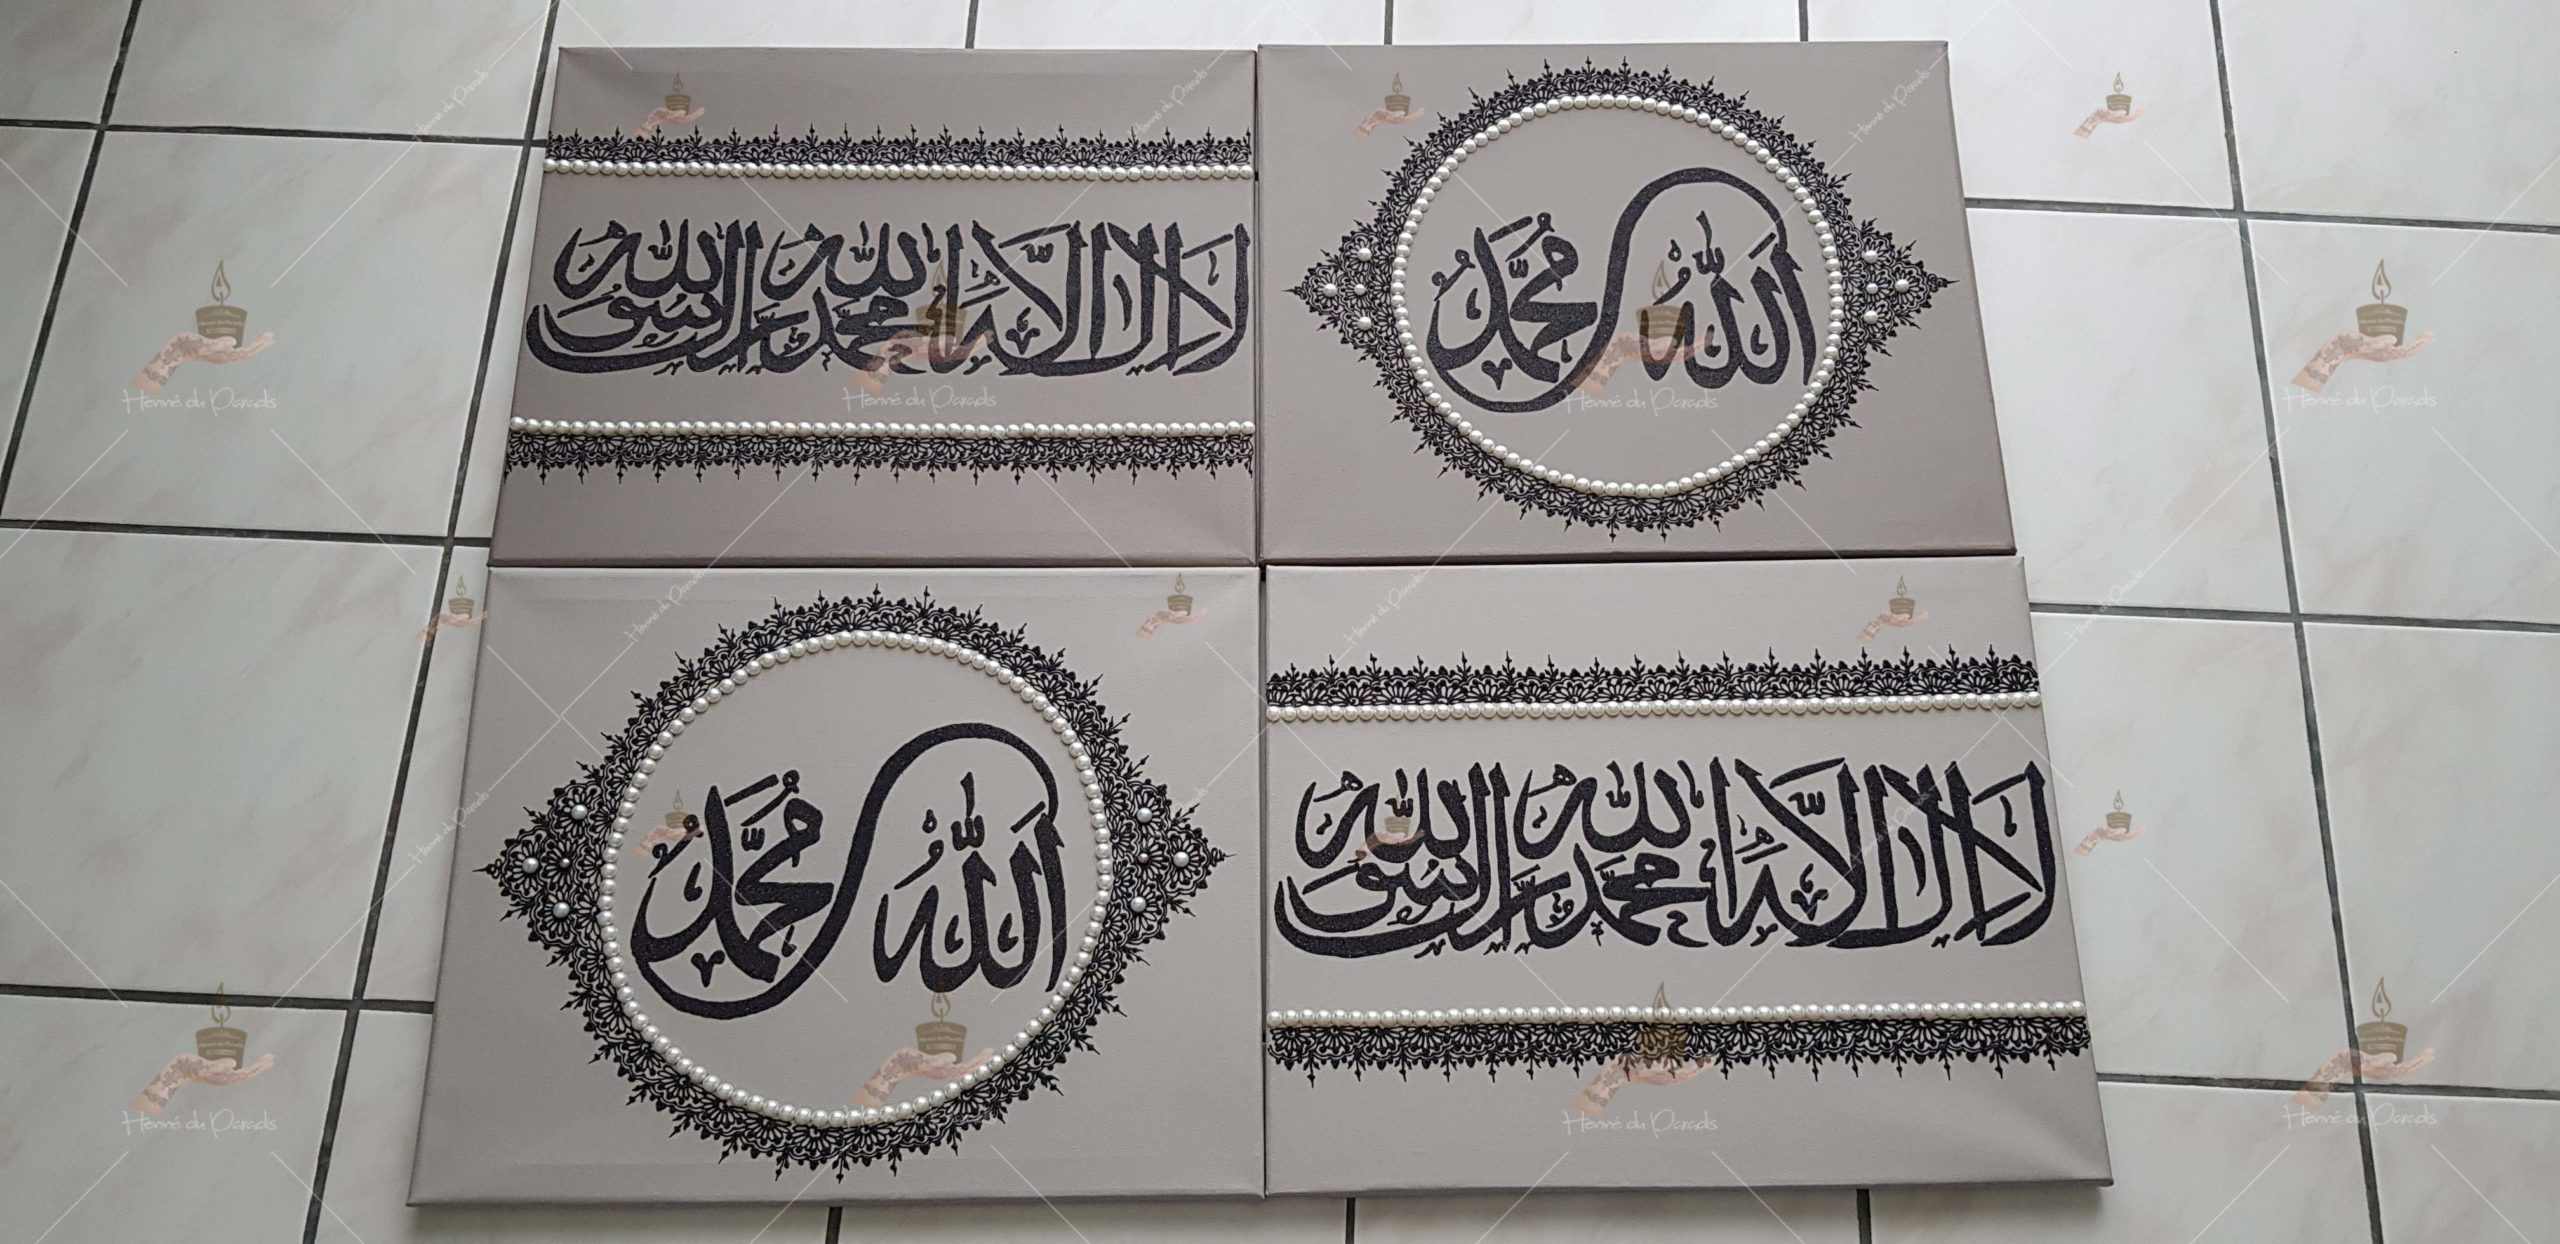 لا إله إلا الله محمد رسول الله
الله محمد
الله محمد
لا إله إلا الله محمد رسول الله
Henné du Paradis